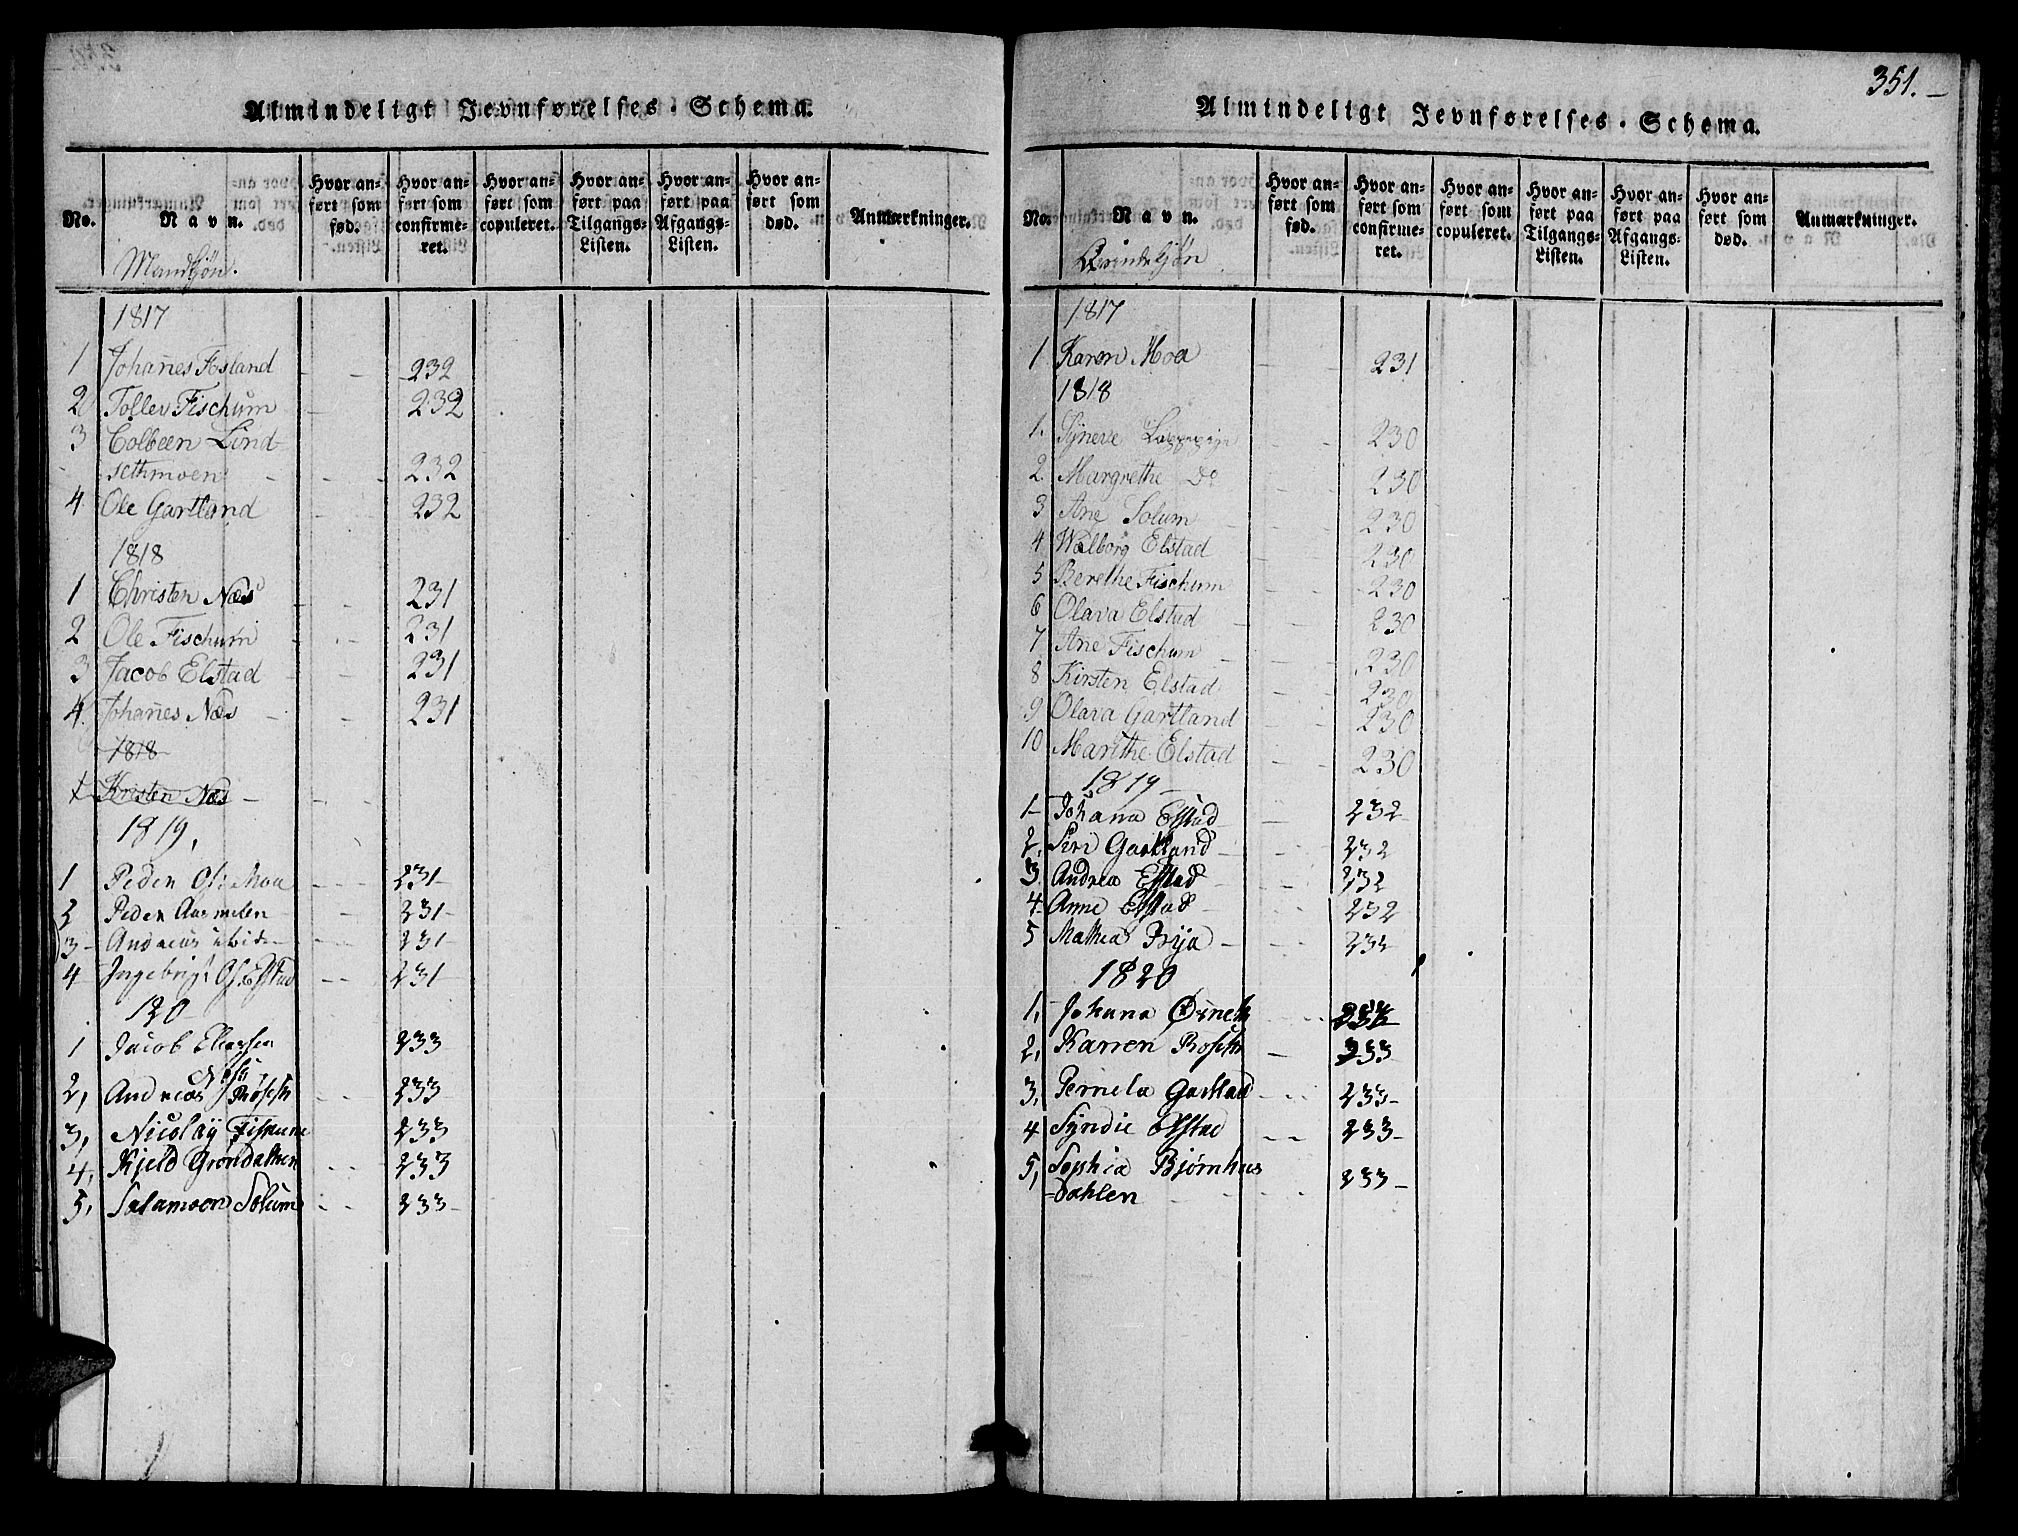 Almindeligt Jevnførelses-Schema.
No.
Navn.
Hvor anført som fød.
Hvor anført som confirmeret.
Hvor anført som copuleret.
Hvor anført paa Tilgangs-Listen.
Hvor anført paa Afgangs-Listen.
Hvor anført som død.
Anmærkninger.
Mandkjøn.
1817
1 Johan̄es Fosland - - 232
2 Tollev Fischum - 232
3 Colbeen Lind-
sethmoen - - - 232
4 Ole Gartland - - 232
1818
1 Christen Næs - - 231
2 Ole Fischum - - 231
3 Jacob Elstad - - 231
4. Johan̄es Næs - - 231
1818
1 Kristen Næs - - -
1819,
1 Peder Ols. Moa - - - 231-
2 Peder Aasmelen - - 231-
3- Andreas - - - 231-
4 Ingebrigt Ols. Elstad - - 231-
120
1 Jacob Eliassen 233
2, Andreas Røseth - - 233
3, Nicolaÿ Fiskum 233
4, Kjeld Grøndalsen - - 233
5, Salamoon Solum - - 233-
351.-
Almindeligt Jevnførelses-Schema.
No.
Navn.
Hvor anført som fød.
Hvor anført som confirmeret.
Hvor anført som copuleret.
Hvor anført paa Tilgangs-Listen.
Hvor anført paa Afgangs-Listen.
Hvor anført som død.
Anmærkninger.
Qvindekjøn
1817
1 Karen Moa - - 231
1818
1. Sÿneve - - 230
2. Margrethe Do - - 230
3 Ane Solum - - 230
4 Wælborg Elstad 230
5 Berethe Fischum - - 230
6 Olava Elstad - - 230
7 Ane Fischum - - 230
8 Kirsten Elstad - - 230
9 Olava Gartland - - 230
10 Marithe Elstad - - 230
1819-
1- Johana Elstad - - 232-
2. Siri Gartland - - 232
3. Andrea Elstad - - 232
4. Anne Elstad - - 232
5 Mathea Prija - - - 232
1820
1, Johana - - -
2, Karren Roseth - 233
3, Pernela Gartlad - - - 233-
4 Syndie Elstad - - 233-
5, Sophia Bjørnhus
=dahlen - - - - 233-